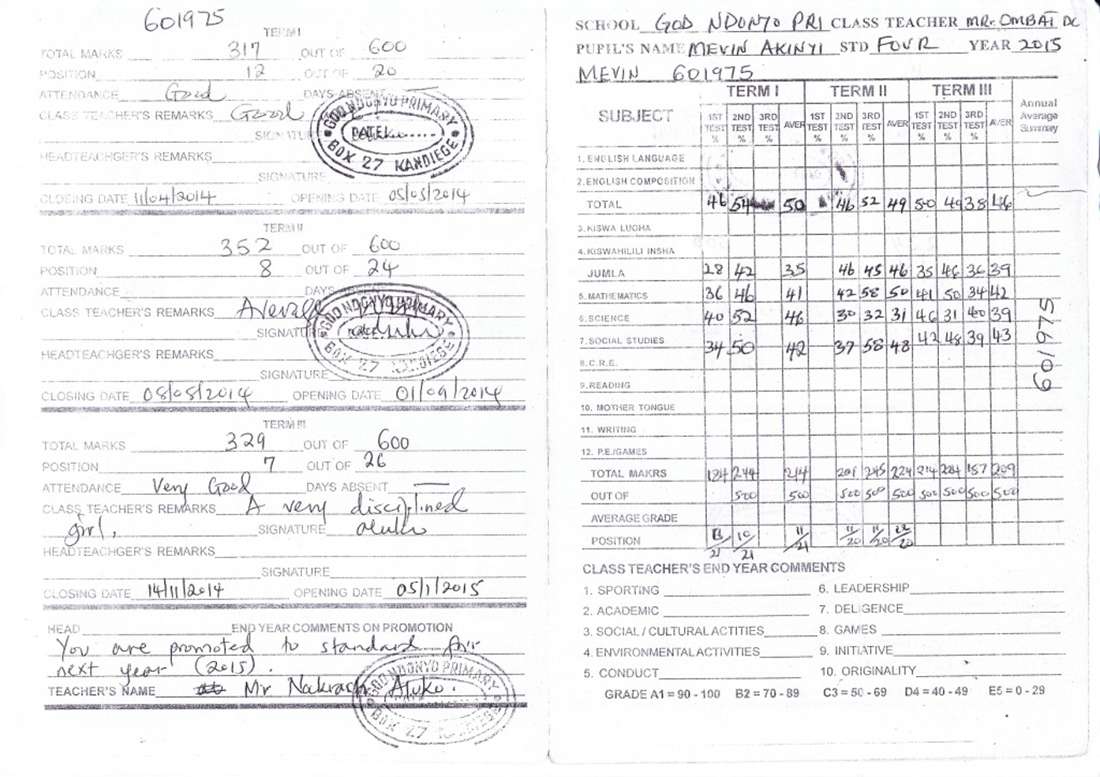 601975
TERM I
TOTAL MARKS 317 OUT OF 600
POSITION 12 OUT OF 20
ATTENDANCE Good DAYS ABSENT
CLASS TEACHER'S REMARKS Good
SIGNATURE
HEADTEACHGER'S REMARKS
SIGNATURE
CLOSING DATE 11/04/2014 OPENING DATE 05/05/2014
GOD NDONYO PRIMARY
DATE
BOX 27 KANDIEGE
TERM II
TOTAL MARKS 352 OUT OF 600
POSITION 8 OUT OF 24
ATTENDANCE DAYS ABSENT
CLASS TEACHER'S REMARKS Average
SIGNATURE
HEADTEACHGER'S REMARKS
SIGNATURE
CLOSING DATE 08/08/2014 OPENING DATE 01/09/2014
GOD NDONYO PRIMARY
BOX 27 KANDIEGE
TERM III
TOTAL MARKS 329 OUT OF 600
POSITION 7 OUT OF 26
ATTENDANCE Very Good DAYS ABSENT —
CLASS TEACHER'S REMARKS A very disciplined
girl. SIGNATURE aluko
HEADTEACHGER'S REMARKS
SIGNATURE
CLOSING DATE 14/11/2014 OPENING DATE 05/1/2015
HEAD END YEAR COMMENTS ON PROMOTION
You are promoted to standard four
next year (2015).
TEACHER'S NAME Mr Aluko.
GOD NDONYO PRIMARY
BOX 27 KANDIEGE
SCHOOL GOD NDONYO PRI CLASS TEACHER MR. OMBAI DC
PUPIL'S NAME MEVIN AKINYI STD FOUR YEAR 2015
MEVIN 601975
SUBJECT TERM I TERM II TERM III Annual Average Summary
1ST TEST % 2ND TEST % 3RD TEST % AVER 1ST TEST % 2ND TEST % 3RD TEST % AVER 1ST TEST % 2ND TEST % 3RD TEST % AVER
1. ENGLISH LANGUAGE
2. ENGLISH COMPOSITION
TOTAL 46 54 50 46 52 49 50 49 38 46
3. KISWA LUGHA
4. KISWAHILILI INSHA
JUMLA 28 42 35 46 45 46 35 46 36 39
5. MATHEMATICS 36 46 41 42 58 50 41 50 34 42
6. SCIENCE 40 52 46 30 32 31 46 31 40 39
7. SOCIAL STUDIES 34 50 42 37 58 48 42 48 39 43
8. C.R.E.
9. READING
10. MOTHER TONGUE
11. WRITING
12. P.E./GAMES
TOTAL MAKRS 184 244 214 201 245 224 214 224 187 209
OUT OF 500 500 500 500 500 500 500 500 500
AVERAGE GRADE
POSITION 13/21 10/21 11/21 11/20 11/20 12/20
601975
CLASS TEACHER'S END YEAR COMMENTS
1. SPORTING 6. LEADERSHIP
2. ACADEMIC 7. DELIGENCE
3. SOCIAL / CULTURAL ACTITIES 8. GAMES
4. ENVIRONMENTAL ACTIVITIES 9. INITIATIVE
5. CONDUCT 10. ORIGINALITY
GRADE A1 = 90 - 100 B2 = 70 - 89 C3 = 50 - 69 D4 = 40 - 49 E5 = 0 - 29